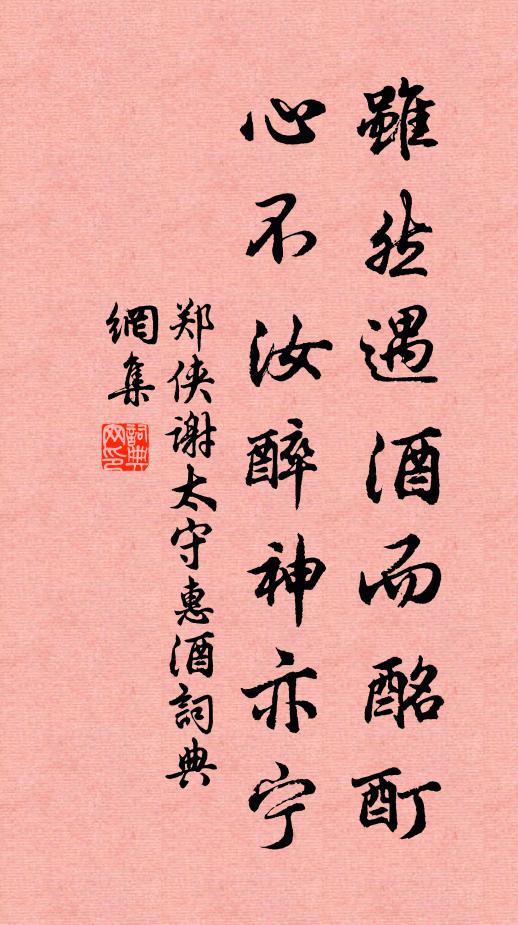 雖然遇酒而酩酊
心不汝醉神亦宁
郑侠谢太守惠酒詞典
網集
詞典网印